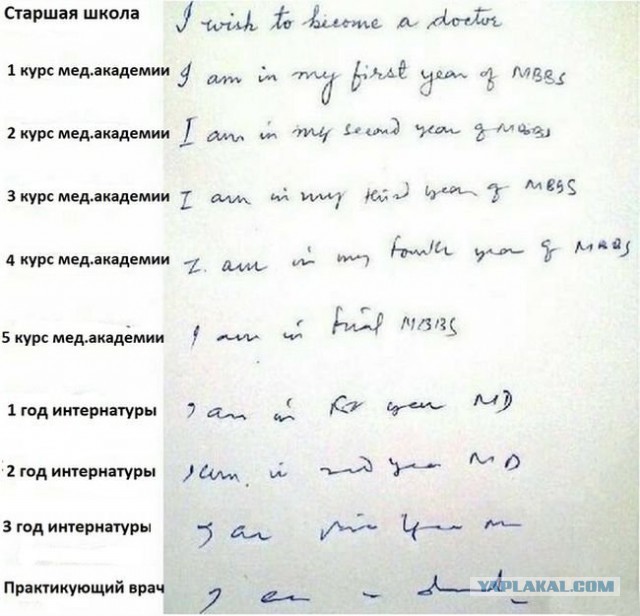 Старшая школа I wish to become a doctor
1 курс мед.академии I am in my first year of MBBS
2 курс мед.академии I am in my second year of MBBS
3 курс мед.академии I am in my third year of MBBS
4 курс мед.академии I. am in my fourth year of MBBS
5 курс мед.академии I am in final MBBS
1 год интернатуры I am in year MD
2 год интернатуры I am in 2nd year MD
3 год интернатуры
Практикующий врач
YAPLAKAL.COM